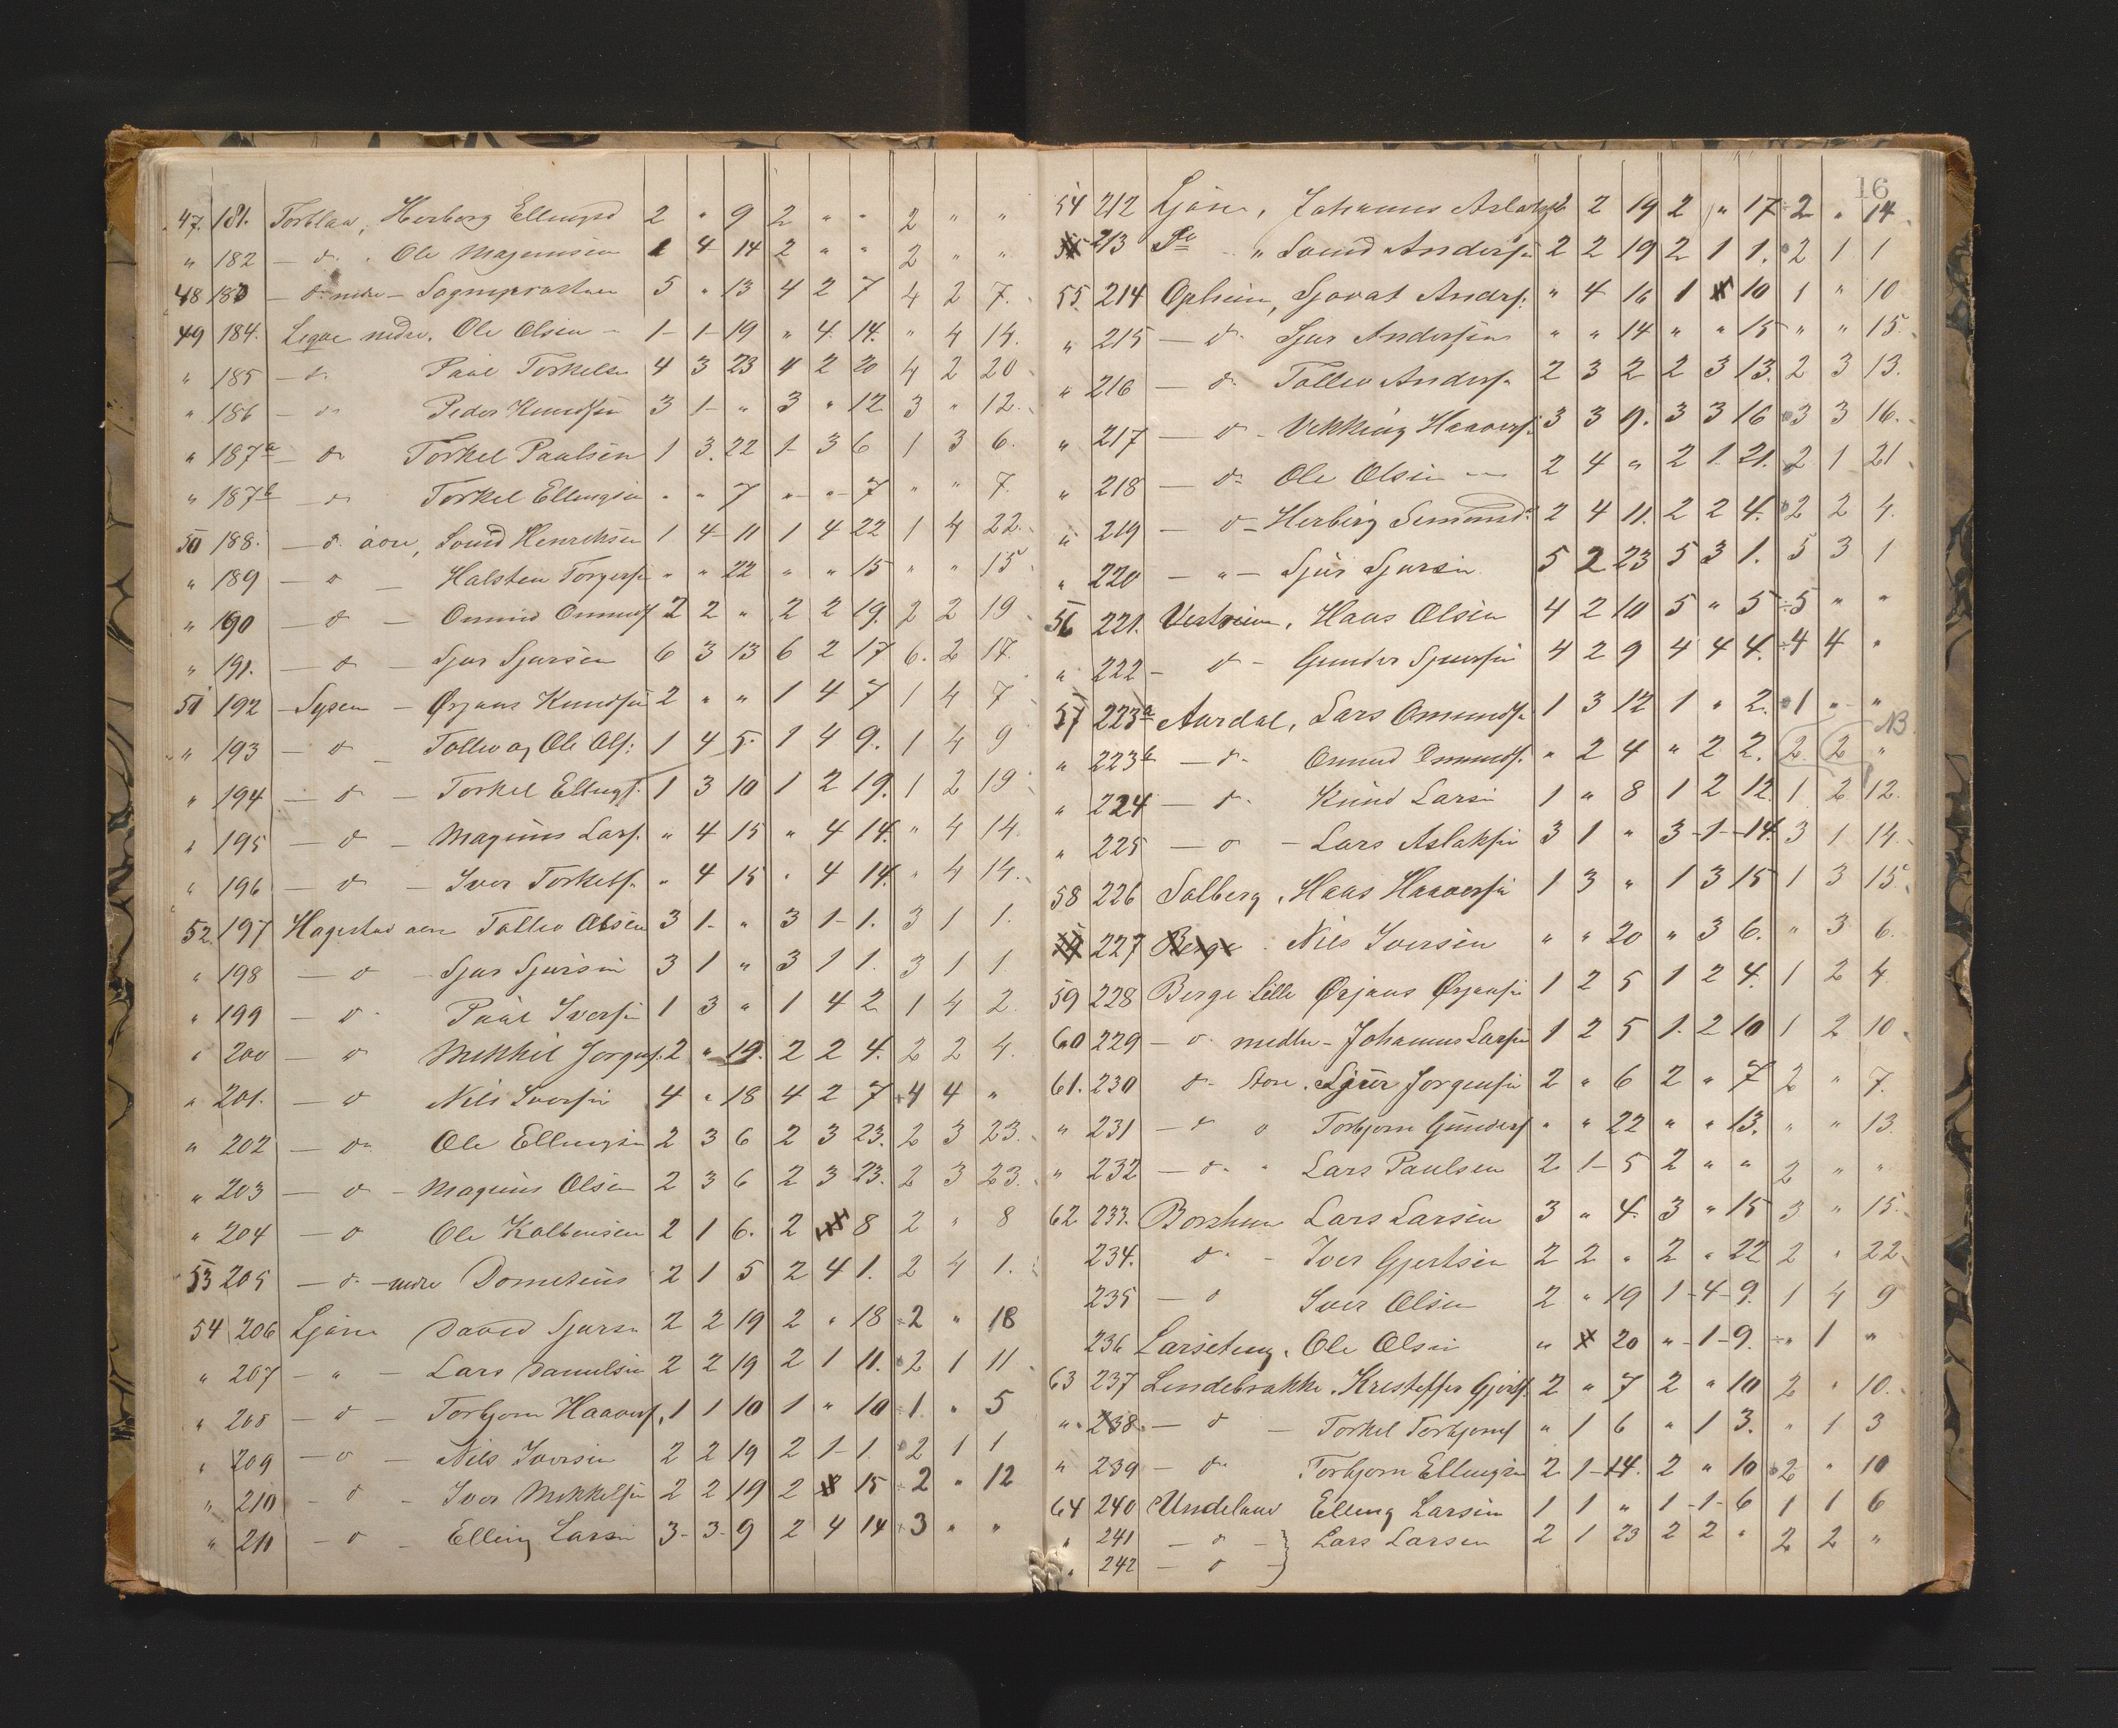 47. 181. Torblaa, Herborg Ellingsd 2 " 9 2 " " 2 " "
" 182 — do Ole Magnussen 1 4 14 2 " " 2 " "
48 183 — do nedre — Sogneprosten 5 " 13 4 2 7 4 2 7.
49 184. Legve nedre. Ole Olsen — 1 - 1 - 19 " 4 14. " 4 14.
" 185 — do Paal Torkelsen 4 3 23 4 2 20 4 2 20
" 186 — do Peder Knudsen 3 1 - " 3 " 12 3 " 12.
" 187a — do Torkel Paulsen 1 3. 22 1 - 3 6 1 3 6.
" 187b — do Torkel Ellingsen " " 7 " " 7 " " 7.
50 188. — do øvre, Svend Henriksen 1 4 - 11 1 4 22 1 4 22.
" 189 — do — Halsten Torgersen " " 22 " " 15 " " 15
" 190 — do — Omund Omunds. 2 2 " 2 2 19. 2 2 19
" 191. — do — Sjur Sjursen 6 3 13 6 2 17 6. 2 17.
51 192 — Sysen — Ørjans Knudsen 2 " " 1 4 7 1 4 7
" 193 — do — Tollev og Ole Ols: 1 4 5. 1 4 9. 1 4 9
" 194 — do — Torkel Ellings. 1 3 10 1 2 19. 1 2 19
" 195 — do — Magnus Lars. " 4 15 " 4 14. " 4 14.
" 196 — do — Iver Torkels. " 4 15 " 4 14. " 4 14.
52. 197 Hagestad øvre Tollev Olsen 3 1 - " 3 1 - 1. 3 1 1.
" 198 — do — Sjur Sjursen 3 1 " 3 1 1. 3 1 1.
" 199 — do Paal Iversen 1 3 " 1 4 2 1 4 2.
" 200 — do Mikkel Jorgens. 2 " 19. 2 2 4. 2 2 4.
" 201. — do Nils Iversen 4 " 18 4 2 7 4 4 "
" 202 — do Ole Ellingsen 2 3 6 2 3 23. 2 3 23.
" 203 — do — Magnus Olsen 2 3 6 2 3 23. 2 3 23.
" 204 — do Ole Kolbensen 2 1 6. 2 8 2 " 8
53 205 — do — nedre Dometius 2 1 5 2 4 1. 2 4 1.
54 206 Ljøne David Sjursen 2 2 19 2 " 18 2 " 18
" 207 — " — Lars Danielsen 2 2 19 2 1 11. 2 1 11
" 208 — do — Torbjorn Haavars. 1 1 10 1 " 10 1. " 5
" 209 — do — Nils Iversen 2 2 19 2 1 - 1. 2 1 1
" 210 — do — Iver Mikkelsen 2 2 19 2 15 2 " 12
" 211 — do — Elling Larsen 3 - 3 - 9 2 4 14 3 " "
16
54 212 Ljøne, Johannes Aslaks. 2 19 2 " 17 2 " 14
213 Do " Svend Andersen 2 2 19 2 1 1. 2 1 1
55. 214 Opheim, Sjovat Anders. " 4 16 1 10 1 " 10
" 215 — do Sjur Andersen " " 14 " " 15 " " 15.
" 216 — do Tollev Andersen 2 3 2 2 3 13. 2 3 13.
" 217 — do — Vikking Haavars. 3 3 9. 3 3 16 3 3 16.
" 218 — do Ole Olsen — 2 4 " 2 1 21. 2 1 21
" 219 — do — Herbørg Semunds. 2 4 11. 2 2 4. 2 2 4.
" 220 — " — Sjur Sjursen 5 2 23 5 3 1. 5 3 1
56 221. Vestreim, Haas Olsen 4 2 10 5 " 5 5 " "
" 222 — do — Gunder Sjursen 4 2 9 4 4 4. 4 4 "
57 223a Aardal, Lars Omundsen 1 3 12 1 " 2. 1 " "
NB
" 223b — do Omund Omunds. " 2 4 " 2 2. 2 2 "
" 224 — do Knud Larsen 1 " 8 1 2 12. 1 2 12.
" 225 — do — Lars Aslaksen 3 1 " 3 - 1 - 14. 3 1 14.
58 226 Solberg, Haas Haavarsen 1 3 " 1 3 15 1 3 15.
227 Berge Nils Iversen " " 20 " 3 6. " 3 6.
59 228 Berge lille Ørjans Ørjansen 1 2 5 1 2 4. 1 2 4
60 229 — do medlre — Johannes Larsen 1 2 5 1. 2 10 1 2 10
61. 230 do Store. Sjur Jorgensen 2 " 6 2 " 7 2 " 7.
" 231 — do o Torbjorn Gunders. " " 22 " " 13. " " 13
" 232 — do " Lars Paulsen 2 1 - 5 2 " " 2 " "
62 233. Borsheim Lars Larsen 3 " 4. 3 " 15 3 " 15.
234. do — Iver Gjertsen 2 2 " 2 " 22 2 " 22
235 — do Iver Olsen 2 " 19 1 - 4 - 9. 1 4 9
236 Larseteng. Ole Olsen " 20 " - 1 - 9. " 1 "
63 237 Lindebrække. Kristoffer Gjerts. 2 " 7 2 " 10 2 " 10.
" 238 — do — Torkel Torbjorns. " 1 6 " 1 3. " 1 3
" 239 — do Torbjorn Ellingsen 2 1 - 14. 2 " 10 2 " 10
64 240 Undeland Elling Larsen 1 1 " 1 - 1 - 6 1 1 6
" 241 — do — } Lars Larsen 2 1 23 2 2 " 2 2 "
" 242 — do —